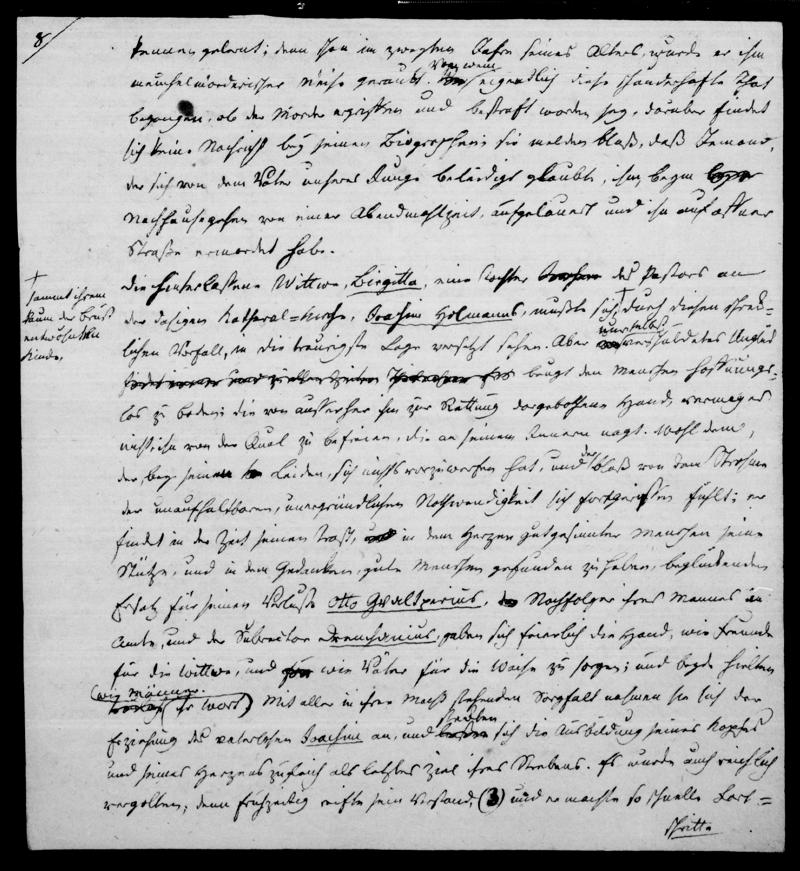 8/
kennen gelernt; denn schon im zweyten Jahre seines Alters, wurde er ihm
meuchelmörderischer Weise geraubt. Von wem eigendlich diese schauderhafte That
begangen, ob der Mörder ergriffen und bestraft worden sey, darüber findet
sich keine Nachricht bey seinen Biographen; sie melden bloß, daß Jemand,
der sich von dem Vater unseres Junge beleidigt glaubte, ihm beym
Nachhausegehen von einer Abendmahlzeit, aufgelauert und ihn auf offner
Straße ermordet habe.
Die hinterlassene Wittwe, Birgitta, eine Tochter des Pastors an
der dasigen Kathedral=Kirche, Joachim Holmanns, mußte sich † durch diesen schrek-
† sammt ihrem
kaum der Brust
entwöhnten
Kinde,
lichen Vorfall, in die traurigste Lage versetzt sehen. Aber nur selbst verschuldetes Unglück
beugt den Menschen hoffnungs-
los zu Boden; die von ausserher ihm zur Rettung dargebothene Hand, vermag es
nicht, ihn von der Qual zu befreien, die an seinem Innern nagt. Wohl dem,
der bey seinen Leiden, sich nichts vorzuwerfen hat, und der bloß von dem Strohme
der unaufhaltbaren, unergründlichen Nothwendigkeit sich fortgerissen fühlt; er
findet in der Zeit seinen Trost, in dem Herzen gutgesinnter Menschen seine
Stütze, und in dem Gedanken, gute Menschen gefunden zu haben, beglückenden
Ersatz für seinen Verlust. Otto Gualtperius, Nachfolger ihres Mannes im
Amte, und der Subrector Drenchanius, gaben sich feierlich die Hand, wie Freunde
für die Wittwe, und wie Väter für die Waise zu sorgen; und beyde hielten
(wie Männer.
ihr Wort) Mit aller in ihrer Macht stehenden Sorgfalt nahmen sie sich der
Erziehung des vaterlosen Joachim an, und sezten sich die Ausbildung seines Kopfes
und seines Herzens zugleich als letztes Ziel ihres Strebens. Es wurde auch reichlich
vergolten; denn frühzeitig reifte sein Verstand, (3) und er machte so schnelle Fort=
schritte